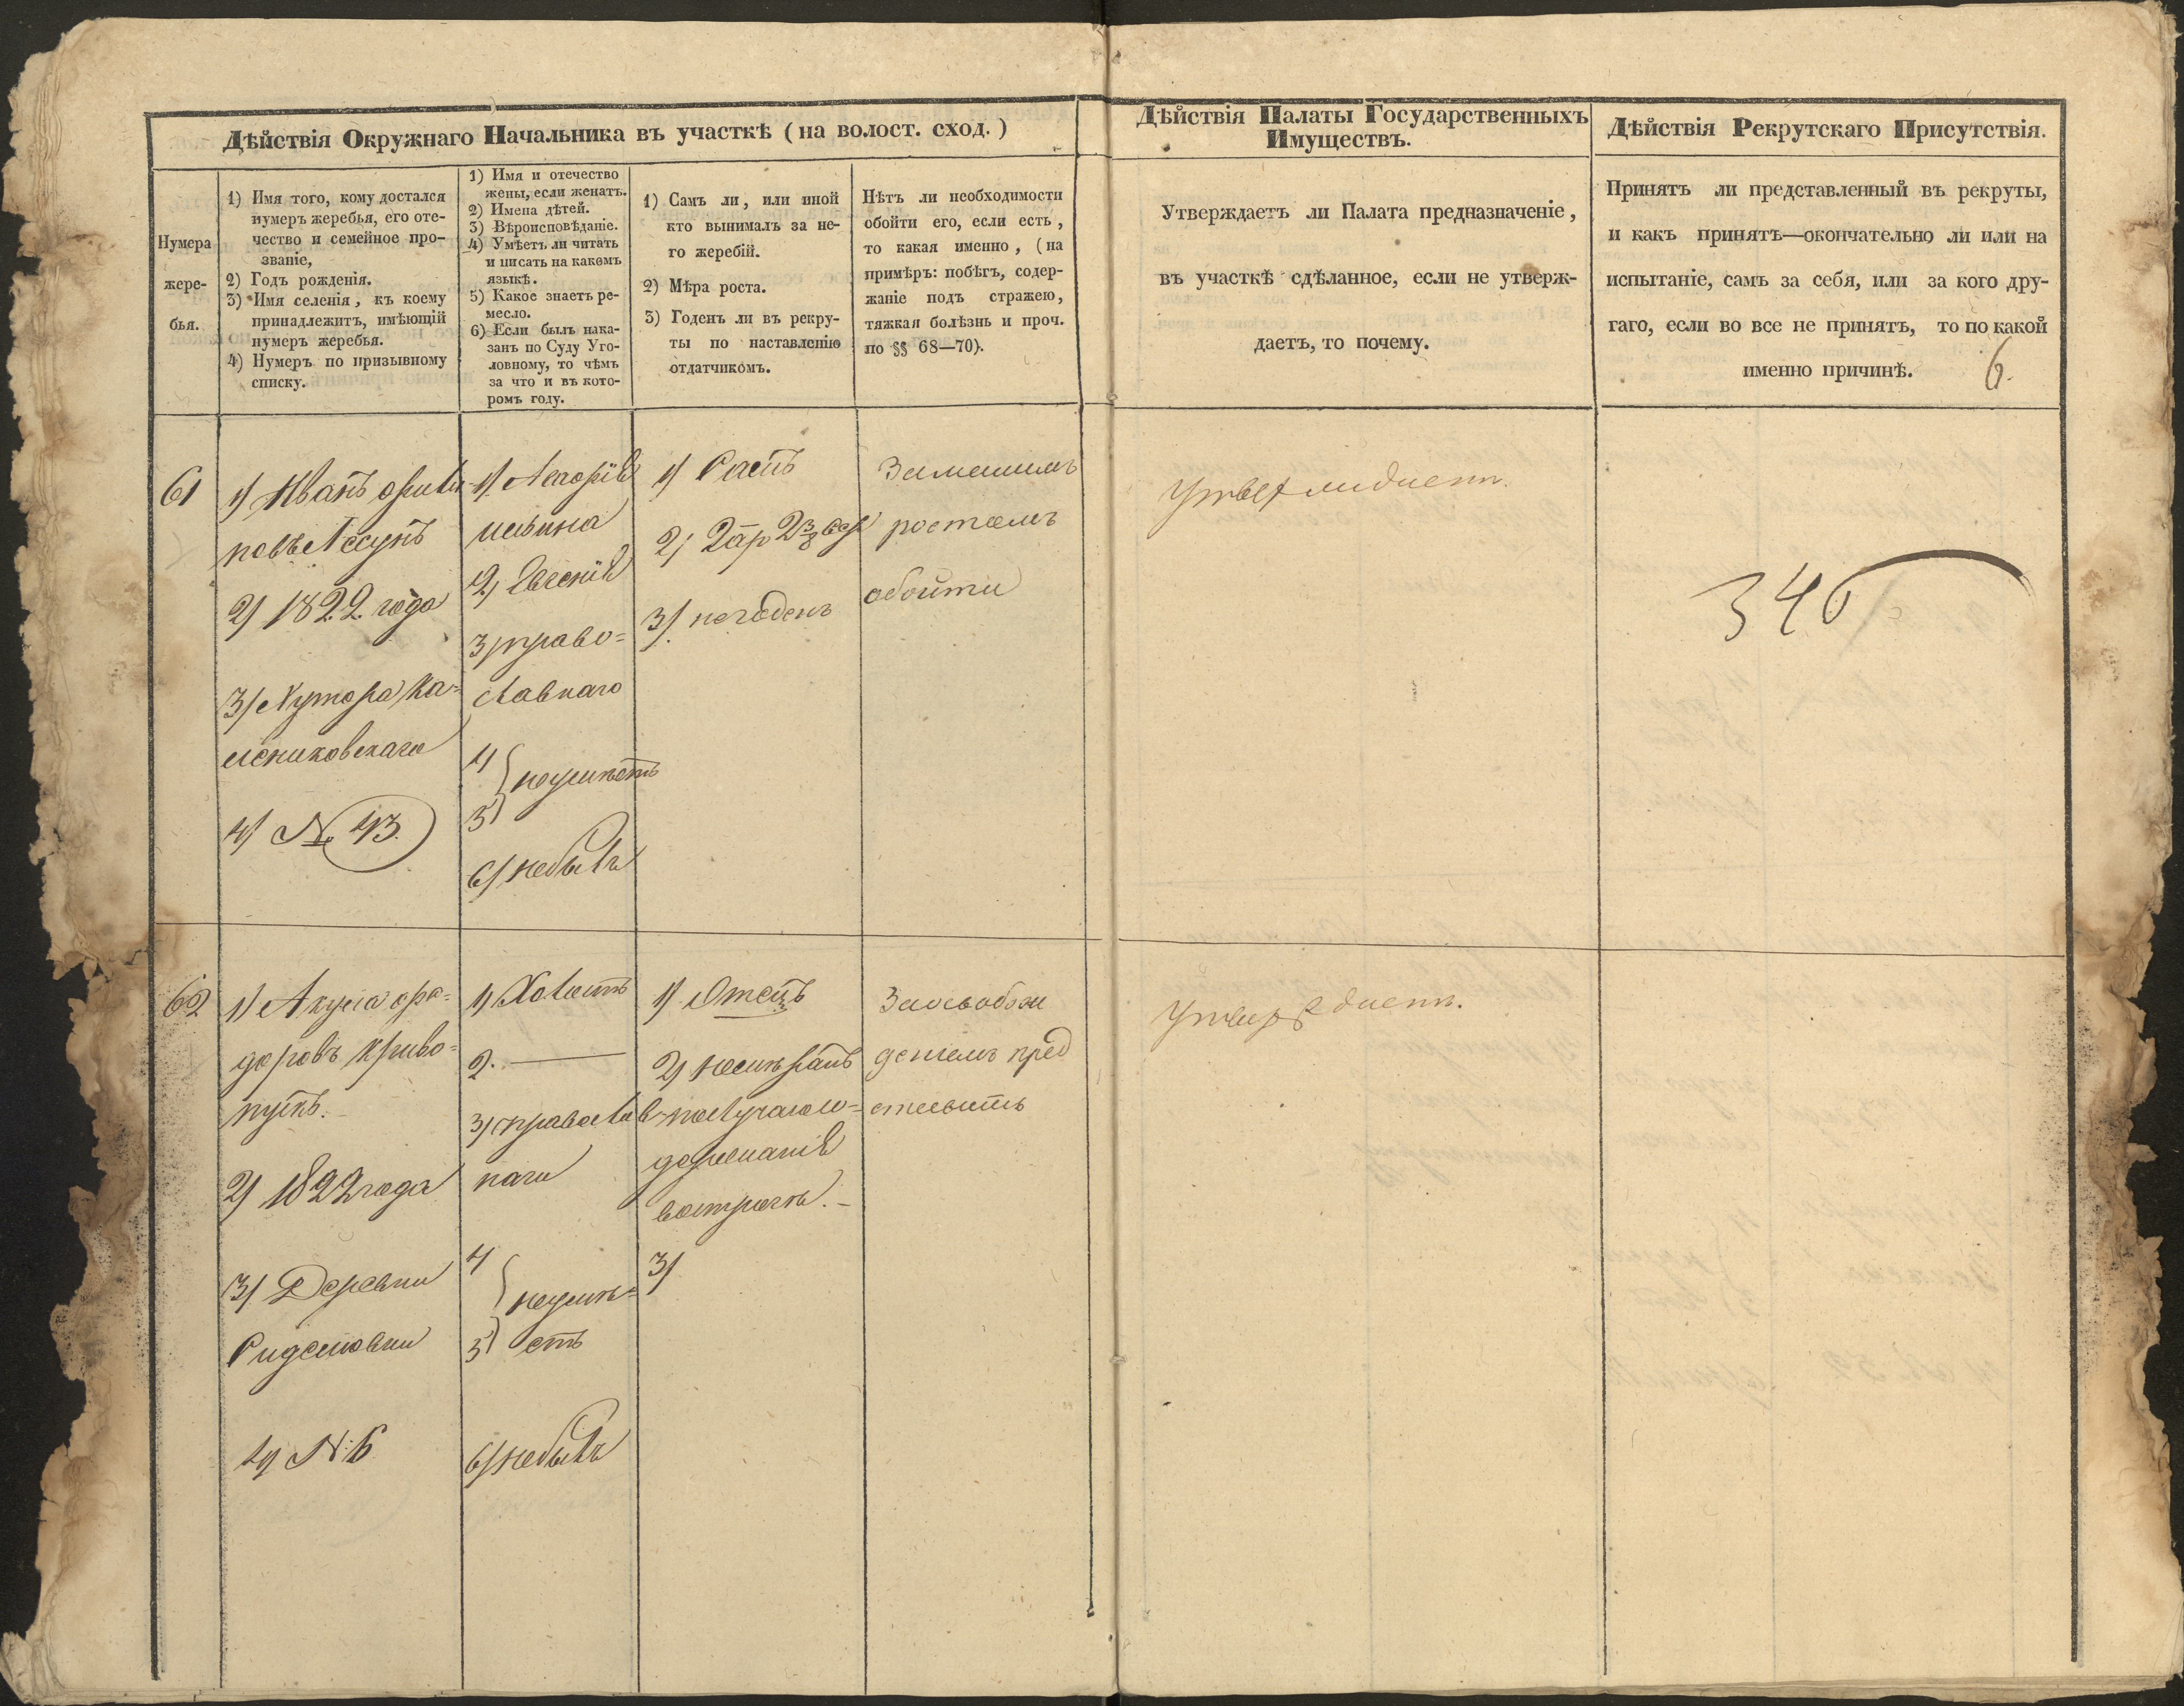 Дѣйствія Окружнаго Начальника въ участкѣ (на волост. сход.)
Дѣйствія Палаты Государственныхъ
Имуществъ.
Дѣйствія Рекрутскаго Присутствія.
Нумера
жере-
бья.
1) Имя того, кому достался
нумеръ жеребья, его оте-
чество и семейное про-
званіе,
2) Годъ рожденія.
3) Имя селенія, къ коему
принадлежитъ, имѣющій
нумеръ жеребья.
4) Нумеръ по призывному
списку.
1) Имя и отечество
жены, если женатъ.
2) Имена дѣтей.
3) Вѣроисповѣданіе.
4) Умѣетъ ли читать
и писать на какомъ
языкѣ.
5) Какое знаетъ ре-
месло.
6) Если былъ нака-
занъ по Суду Уго-
ловному, то чѣмъ
за что и въ кото-
ромъ году.
1) Самъ ли, или иной
кто вынималъ за не-
го жеребій.
2) Мѣра роста.
3) Годенъ ли въ рекру-
ты по наставленію
отдатчикомъ.
Нѣтъ ли необходимости
обойти его, если есть,
то какая именно, (на
примѣръ: побѣгъ, содер-
жаніе подъ стражею,
тяжкая болѣзнь и проч.
по §§ 68—70).
Утверждаетъ ли Палата предназначеніе,
въ участкѣ сдѣланное, если не утверж-
даетъ, то почему.
Принятъ ли представленный въ рекруты,
и какъ принятъ—окончательно ли или на
испытаніе, самъ за себя, или за кого дру-
гаго, если во все не принятъ, то по какой
именно причинѣ.
6.
61
1) Иванъ
2) 1822 года
3) Хутора Ка-
4) № 43.
1)
2) Евгенія
3) право-
славнаго
4)
неумѣетъ
5)
6) небылъ
1) Самъ
2) 2 ар 2 3/8 вер
3) негоденъ
За малымъ
ростомъ
обойти
Утверждаетъ.
346
62
1)
доровъ Криво-
2) 1822 года
3) Деревни
4) № 6
1) Холостъ
2. —
3) православ
наго
4)
неумѣ-
5) етъ
6) небылъ
1) Отецъ
2)
3)
За освобож
деніемъ пред
Утверждаетъ.